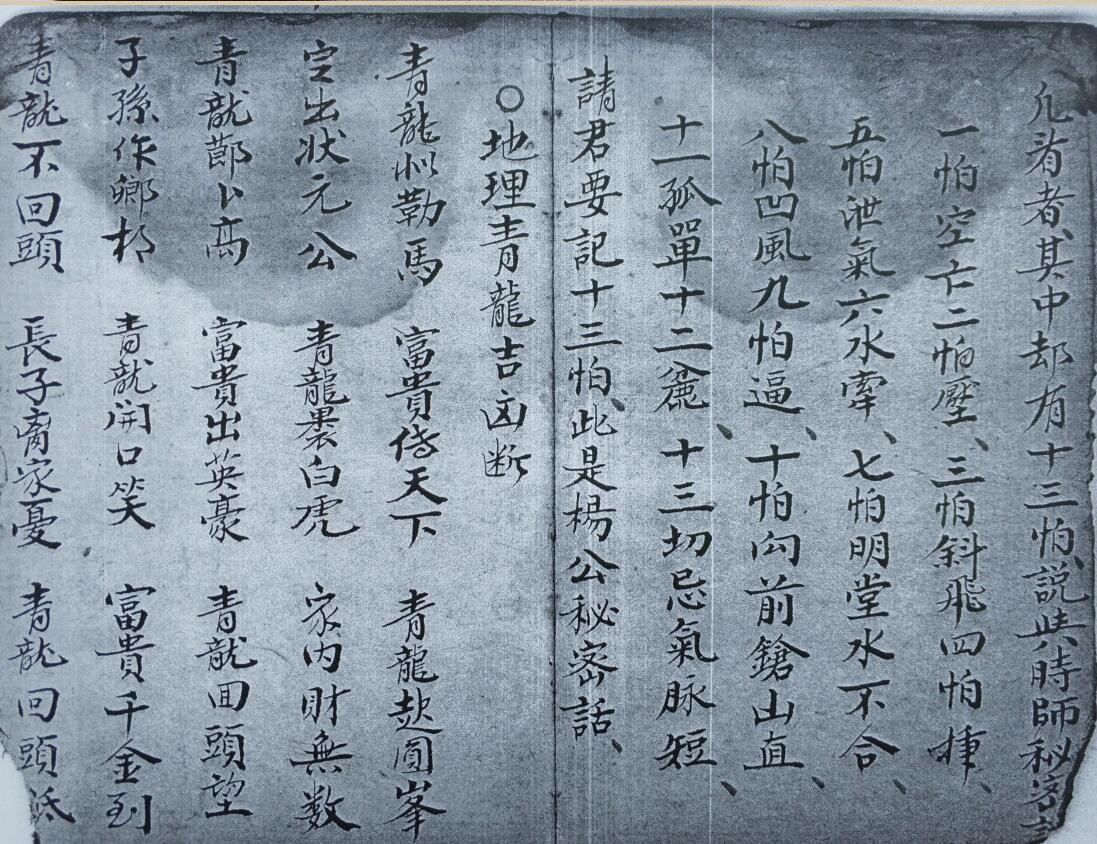 凡着者其中却有十三怕、説與時師秘密
一怕空亡二怕壓、三怕斜飛四怕捶、
五怕泄氣六水牽、七怕明堂水不合、
八怕凹風九怕逼、十怕向前鎗山直、
十一孤單十二麄、十三切忌氣脉短、
請君要記十三怕、此是楊公秘密話、
○地理青龍吉凶断
青龍似勒馬 富貴傳天下 青龍起圓峯
定出状元公 青龍裹白虎 家内財無数
青龍節卜高 富貴出英豪 青龍囬頭望
子孫作鄉 青龍開口笑 富貴千金到
青龍不回頭 長子家憂 青龍回頭